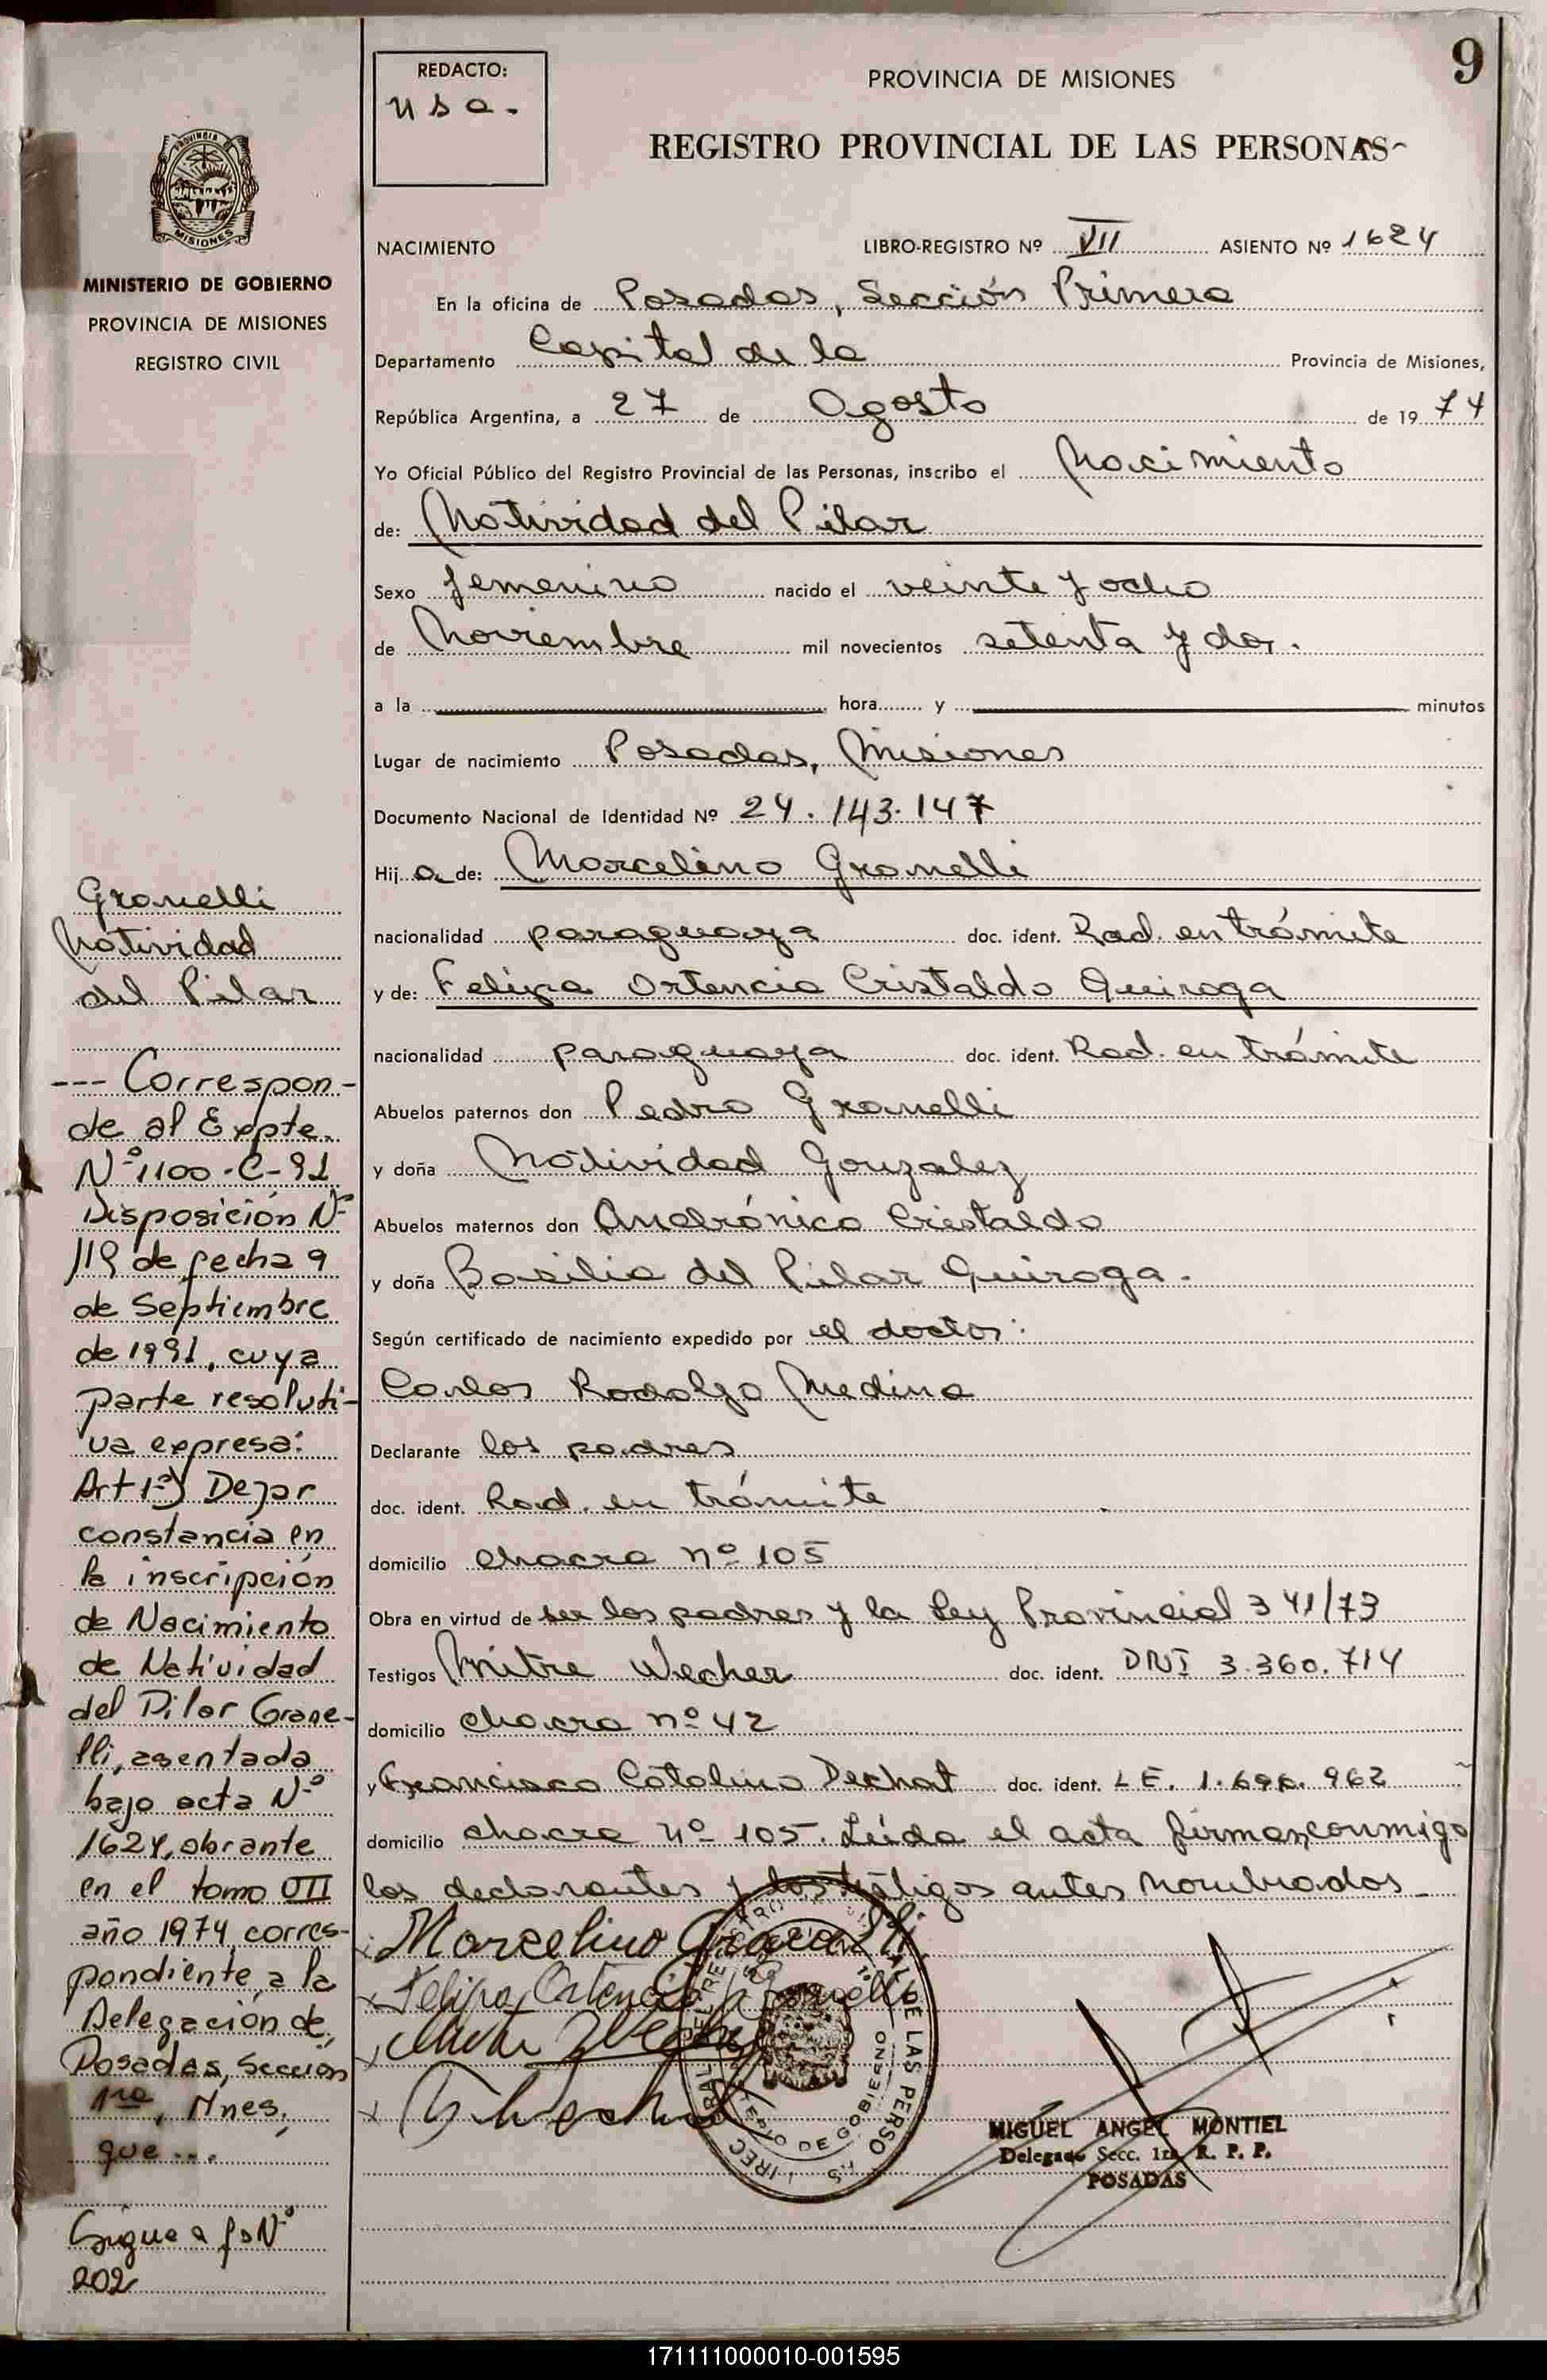 9
REDACTO:
usa.
PROVINCIA DE MISIONES
REGISTRO PROVINCIAL DE LAS PERSONAS
PROVINCIA DE
MISIONES
MINISTERIO DE GOBIERNO
PROVINCIA DE MISIONES
REGISTRO CIVIL
NACIMIENTO LIBRO-REGISTRO Nº VII ASIENTO Nº 1624
En la oficina de Posadas, Sección Primera
Departamento Capital de la Provincia de Misiones,
República Argentina, a 27 de Agosto de 1974
Yo Oficial Público del Registro Provincial de las Personas, inscribo el Nacimiento
de: Natividad del Pilar
Sexo femenino nacido el veinte y ocho
de Noviembre mil novecientos setenta y dos.
a la hora y minutos
Lugar de nacimiento Posadas, Misiones
Documento Nacional de Identidad Nº 24.143.147
Hij a de: Marcelino Granelli
nacionalidad paraguaya doc. ident. Rad. en trámite
y de: Felipa Ortencia Cristaldo Quiroga
nacionalidad paraguaya doc. ident. Rad. en trámite
Abuelos paternos don Pedro Granelli
y doña Natividad Gonzalez
Abuelos maternos don Andrónico Cristaldo
y doña Basilia del Pilar Quiroga.
Según certificado de nacimiento expedido por el doctor:
Carlos Rodolfo Medina
Declarante los padres
doc. ident. Rad. en trámite
domicilio chacra nº 105
Obra en virtud de ser los padres y la Ley Provincial 341/73
Testigos Mitre Wecher doc. ident. DNI 3.360.714
domicilio chacra nº 42
y Francisco Catalino Dechat doc. ident. L E. 1.696.962
domicilio chacra nº 105. Leída el acta firman conmigo
los declarantes y los testigos antes nombrados
Marcelino Granelli
Felipa Ortencia
MIGUEL ANGEL MONTIEL
Delegado Secc. 1ra R. P. P.
POSADAS
Granelli
Natividad
del Pilar
--- Correspon-
de al Expte.
Nº 1100-C-91
Disposición Nº
119 de fecha 9
de Septiembre
de 1991, cuya
parte resoluti-
va expresa:
Art 1º) Dejar
constancia en
la inscripción
de Nacimiento
de Natividad
del Pilar Grane-
lli, asentada
bajo acta Nº
1624, obrante
en el tomo VII
año 1974, corres-
pondiente a la
Delegación de
Posadas, Sección
1ra, Mnes,
que...
Sigue a fº Nº
202
171111000010-001595